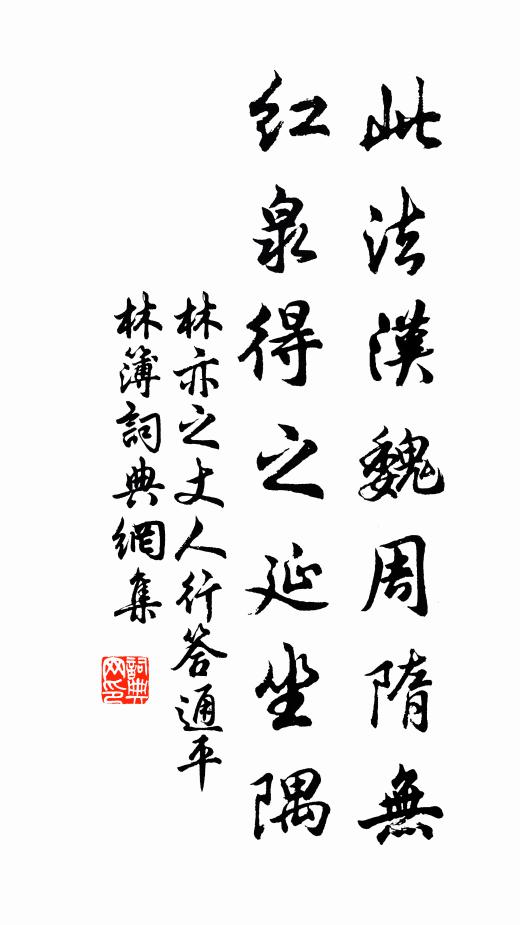 此法漢魏周隋無
紅泉得之延坐隅
林亦之丈人行答通平
林簿詞典網集
詞典网印